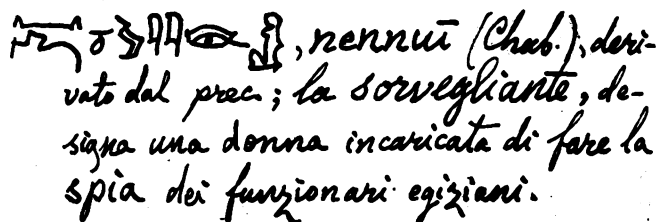 , nennuī (Chab.), deri-
vato dal prec.; la sorvegliante, de-
signa una donna incaricata di fare la
spia dei funzionari egiziani.